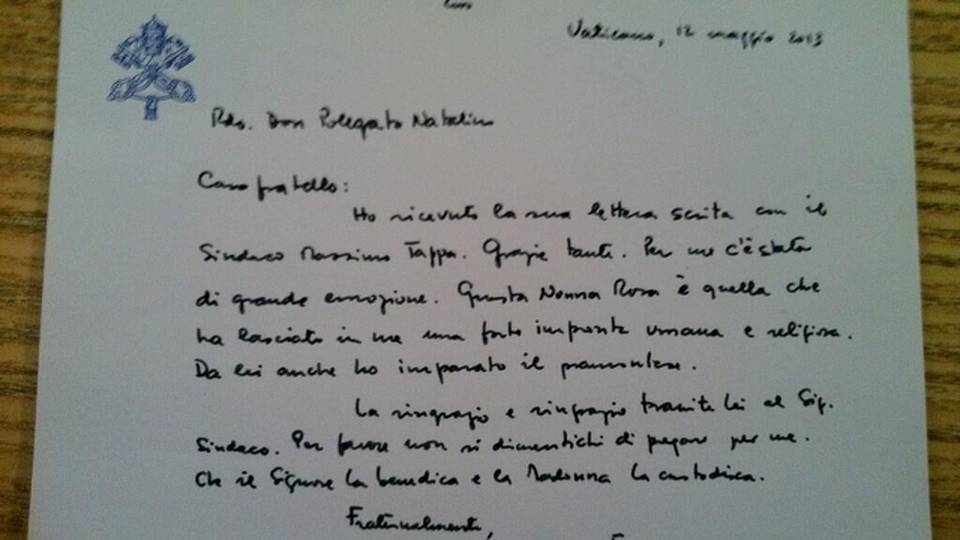 Vaticano, 12 maggio 2013
Rdo. Don Polegato Natalino
Caro fratello:
Ho ricevuto la sua lettera scrita con il
Sindaco Massimo Tappa. Grazie tante. Per me c'è stata
di grande emozione. Questa Nonna Rosa è quella che
ha lasciato in me una forte impronta umana e religiosa.
Da lei anche ho imparato il piamontese.
La ringrazio e ringrazio tramite Lei al Sig.
Sindaco. Per favore non si dimentichi di pregare per me.
Che il Signore la benedica e la Madonna la custodisca.
Fraternalmente,